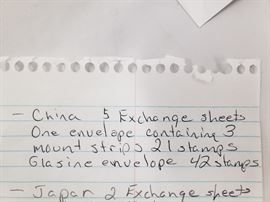 - China 5 Exchange sheets
One envelope containing 3
mount strips 21 stamps
Glasine envelope 42 stamps
- Japan 2 Exchange sheets